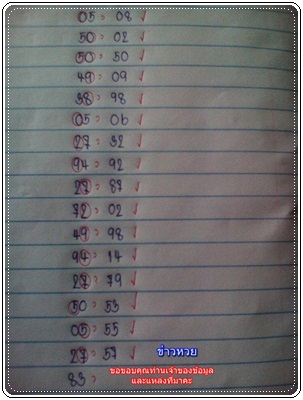 05 = 08 ✓
50 = 02 ✓
50 = 50 ✓
49 = 09 ✓
38 = 98 ✓
05 = 06 ✓
27 = 32 ✓
94 = 92 ✓
27 = 87 ✓
72 = 02 ✓
49 = 98 ✓
94 = 14 ✓
27 = 79 ✓
50 = 53 ✓
05 = 55 ✓
27 = 57 ✓ ข่าวหวย
ขอขอบคุณท่านเจ้าของข้อมูล
83 = และแหล่งที่มาคะ